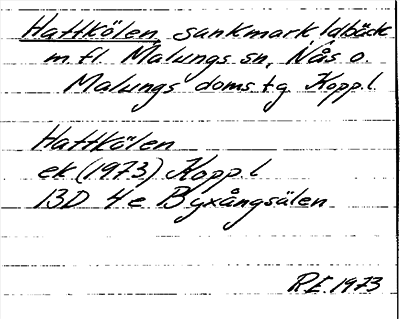 Hattkölen, sankmark Idbäck
m.fl. Malungs sn, Nås o.
Malungs doms.tg Kopp.l.
Hattkölen
ek. (1973) Kopp.l
13D 4e Byxångsälen
R.E. 1973